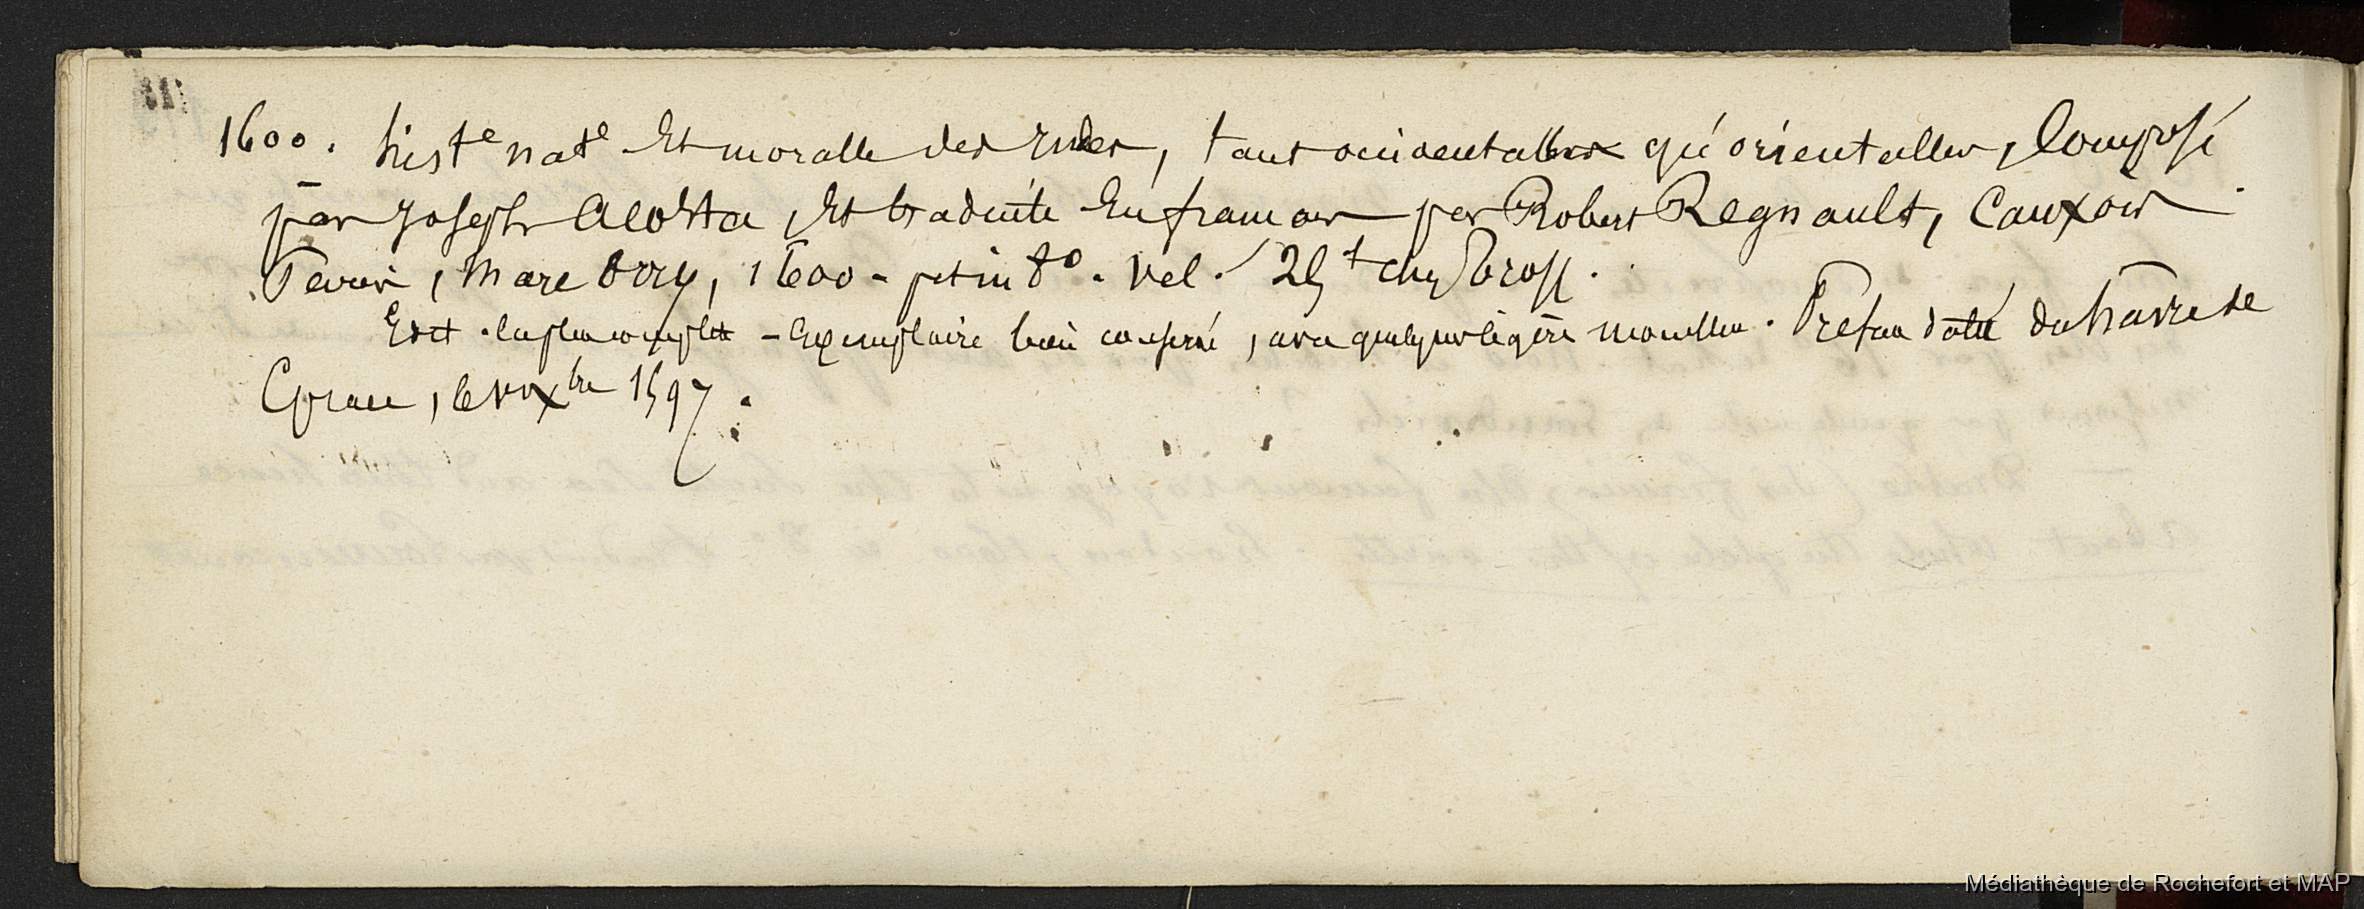 1600. histe nate et moralle des Indes, tant occidentalles qu'orientalles, Composé
par Joseph Acosta, et traduite en françois par Robert Regnault, Cauxois
Paris, Marc Orry, 1600 - pet in 8o. vel. 25 t chez Tross.
Edit. la plus complete - Exemplaire bien conservé, avec quelques légère mouillu. Préface datée du havre de
Grace, le xbre 1597.
Médiathèque de Rochefort et MAP